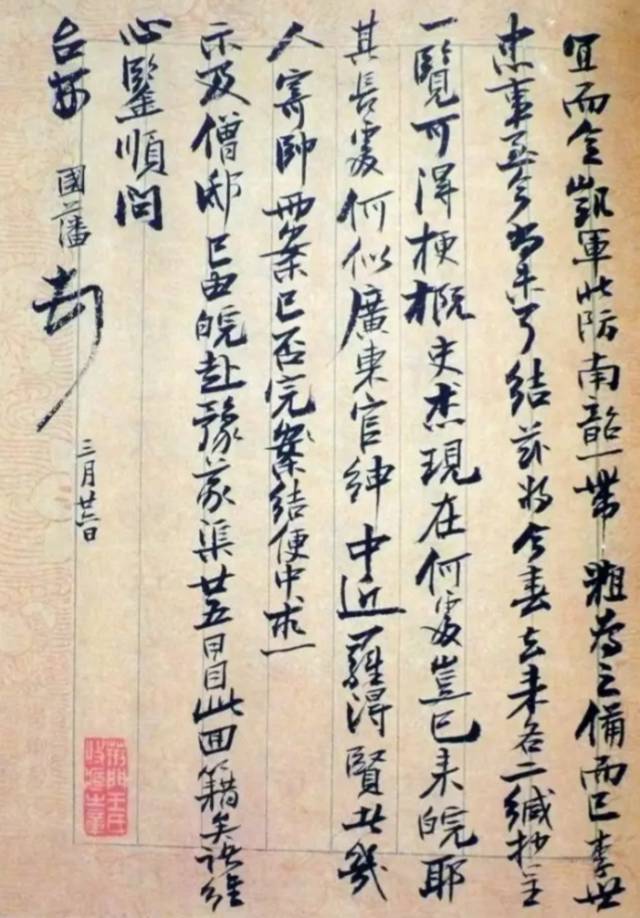 宜而令凱軍北防南韶一帶粗為之備而已李世
忠事至今尚未了結茲將今春去來各二緘抄呈
一覽可得梗概史杰現在何處豈已來皖耶
其長處何似廣東官紳中近羅得賢者幾
人寄帥兩案已否完案結便中求
示及僧邸已由皖赴豫義渠廿五日自此回籍矣諸維
心鑒順問
台安 國藩 頓
三月廿六日